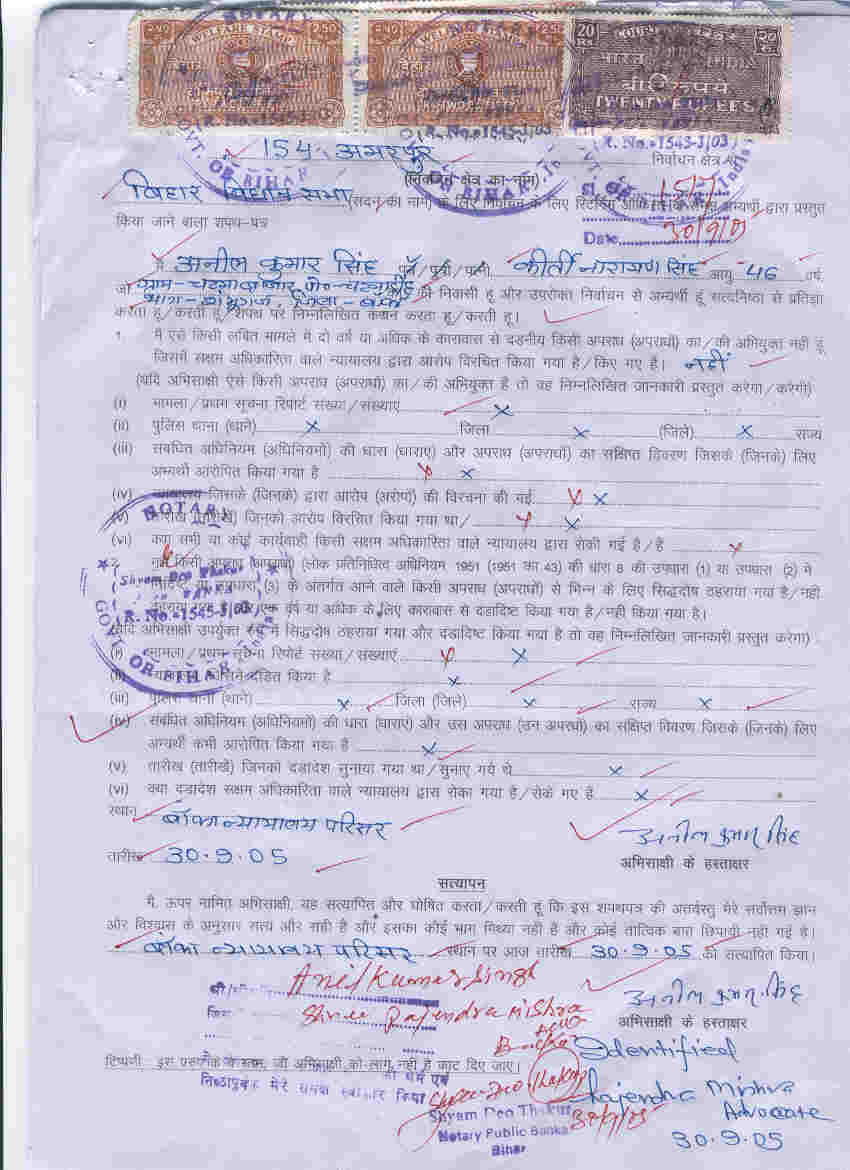 २५० WELFARE STAMP 2.50
२५० WELFARE STAMP 2.50
20 Rs. COURT २० रु.
भारत INDIA
बीस रूपये
TWENTY RUPEES
NOTARY
R. No.-1545-J/03
GOVT. OF BIHAR
154 अमरपुर निर्वाचन क्षेत्र से
(निर्वाचन क्षेत्र का नाम)
बिहार विधान सभा (सदन का नाम) के लिए निर्वाचन के लिए रिटर्निंग ऑफिसर के समक्ष अभ्यर्थी द्वारा प्रस्तुत
किया जाने वाला शपथ-पत्र
Sl. No. 1517
Date 30/9/05
मैं अनील कुमार सिंह पुत्र/पुत्री/पत्नी कीर्ती नारायण सिंह आयु 46 वर्ष,
जो ग्राम-
जिला-बांका का निवासी हूं और उपरोक्त निर्वाचन से अभ्यर्थी हूं सत्यनिष्ठा से प्रतिज्ञा
करता हूं/करती हूं/शपथ पर निम्नलिखित कथन करता हूं/करती हूं।
१ मैं ऐसे किसी लंबित मामले में दो वर्ष या अधिक के कारावास से दंडनीय किसी अपराध (अपराधों) का/की अभियुक्त नहीं हूं
जिसमें सक्षम अधिकारिता वाले न्यायालय द्वारा आरोप विरचित किया गया है/किए गए है। नहीं
(यदि अभिसाक्षी ऐसे किसी अपराध (अपराधों) का/की अभियुक्त है तो वह निम्नलिखित जानकारी प्रस्तुत करेगा/करेगी)
(i) मामला/प्रथम सूचना रिपोर्ट संख्या/संख्याएं x
(ii) पुलिस थाना (थाने) x जिला x (जिले) x राज्य
(iii) संबंधित अधिनियम (अधिनियमों) की धारा (धाराएं) और अपराध (अपराधों) का संक्षिप्त विवरण जिसके (जिनके) लिए
अभ्यर्थी आरोपित किया गया है x
(iv) न्यायालय जिसके (जिनके) द्वारा आरोप (अरोपों) की विरचना की गई x
(v) तारीख (तारीखें) जिनको आरोप विरचित किया गया था/ x
(vi) क्या सभी या कोई कार्यवाही किसी सक्षम अधिकारिता वाले न्यायालय द्वारा रोकी गई है/है
2 किसी अपराध (अपराधों) (लोक प्रतिनिधित्व अधिनियम 1951 (1951 का 43) की धारा 8 की उपधारा (1) या उपधारा (2) में
या उपधारा (3) के अंतर्गत आने वाले किसी अपराध (अपराधों) से भिन्न के लिए सिद्धदोष ठहराया गया है/नहीं
ठहराया गया एक वर्ष या अधिक के लिए कारावास से दंडादिष्ट किया गया है/नहीं किया गया है।
(यदि अभिसाक्षी उपर्युक्त रूप में सिद्धदोष ठहराया गया और दंडादिष्ट किया गया है तो वह निम्नलिखित जानकारी प्रस्तुत करेगा)
NOTARY
Shyam Deo Thakur
BANKA
R. No.-1545-J/03
GOVT. OF BIHAR
(i) मामला/प्रथम सूचना रिपोर्ट संख्या/संख्याएं x
(ii) दंडित किया है x
(iii) पुलिस थाना (थाने) x जिला (जिले) x राज्य x
(iv) संबंधित अधिनियम (अधिनियमों) की धारा (धाराएं) और उस अपराध (उन अपराधों) का संक्षिप्त विवरण जिसके (जिनके) लिए
अभ्यर्थी कभी आरोपित किया गया है x
(v) तारीख (तारीखें) जिनको दंडादेश सुनाया गया था/सुनाए गये थे x
(vi) क्या दंडादेश सक्षम अधिकारिता वाले न्यायालय द्वारा रोका गया है/रोके गए हैं x
स्थान बांका न्यायालय परिसर
अनील कुमार सिंह
तारीख 30.9.05
अभिसाक्षी के हस्ताक्षर
सत्यापन
मैं, ऊपर नामित अभिसाक्षी, यह सत्यापित और घोषित करता/करती हूं कि इस शपथपत्र की अंतर्वस्तु मेरे सर्वोत्तम ज्ञान
और विश्वास के अनुसार सत्य और सही है और इसका कोई भाग मिथ्या नहीं है और कोई तात्विक बात छिपायी नहीं गई है।
बांका न्यायालय परिसर स्थान पर आज तारीख 30.9.05 को सत्यापित किया।
Anil Kumar Singh
अनील कुमार सिंह
Shree Rajendra Mishra
अभिसाक्षी के हस्ताक्षर
Banka
Identified
टिप्पणी: इस प्ररूप के स्तम्भ, जो अभिसाक्षी को लागू नहीं है काट दिए जाए।
निष्ठापूर्वक मेरे समक्ष स्वीकार किया
Shyam Deo Thakur
Rajendra Mishra
Advocate
Shyam Deo Thakur
30/9/05
Notary Public Banka
Bihar
30.9.05